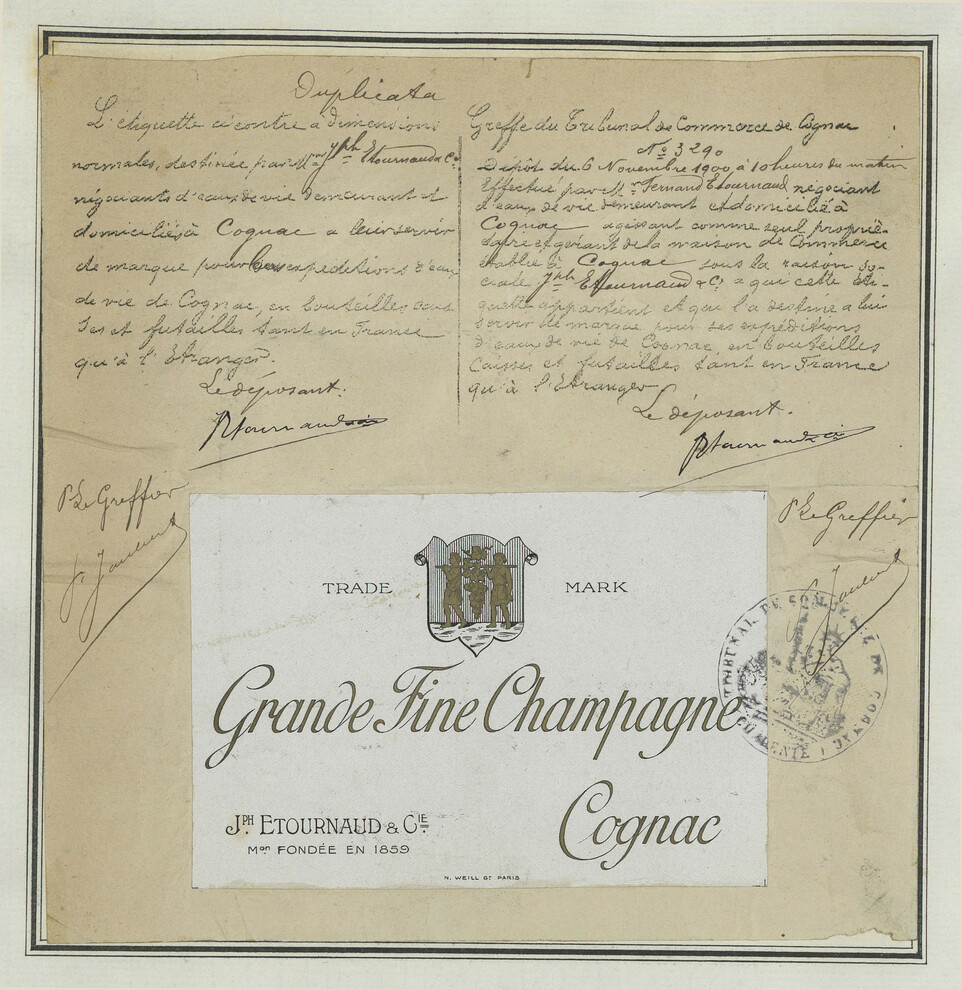 Duplicata
L'étiquette ci contre a dimensions
normales, destinée par MM. Jph Etournaud & Cie
négociants d'eaux de vie demeurant et
domiciliés à Cognac a leur servir
de marque pour les expéditions d'eau
de vie de Cognac, en bouteilles cais
ses et futailles tant en France
qu'à l'Etranger.
Le déposant.
Etournaud & Cie
Greffe du Tribunal de Commerce de Cognac
No 3290
Dépôt du 6 Novembre 1900 à 10 heures du matin
Effectué par Mr Fernand Etournaud négociant
d'eaux de vie demeurant et domicilié à
Cognac agissant comme seul proprié-
taire et gérant de la maison de Commerce
établie à Cognac sous la raison so-
ciale Jph Etournaud & Cie a qui cette éti-
quette appartient et qui l'a destine a lui
servir de marque pour ses expéditions
d'eaux de vie de Cognac en bouteilles
Caisses et futailles tant en France
qu'à l'Etranger
Le déposant.
Etournaud & Cie
Pr Le Greffier
Pr Le Greffier
TRADE MARK
Grande Fine Champagne
Cognac
JPH ETOURNAUD & CIE
Mon FONDÉE EN 1859
N. WEILL Gt PARIS
TRIBUNAL DE COMMERCE DE COGNAC
CHARENTE